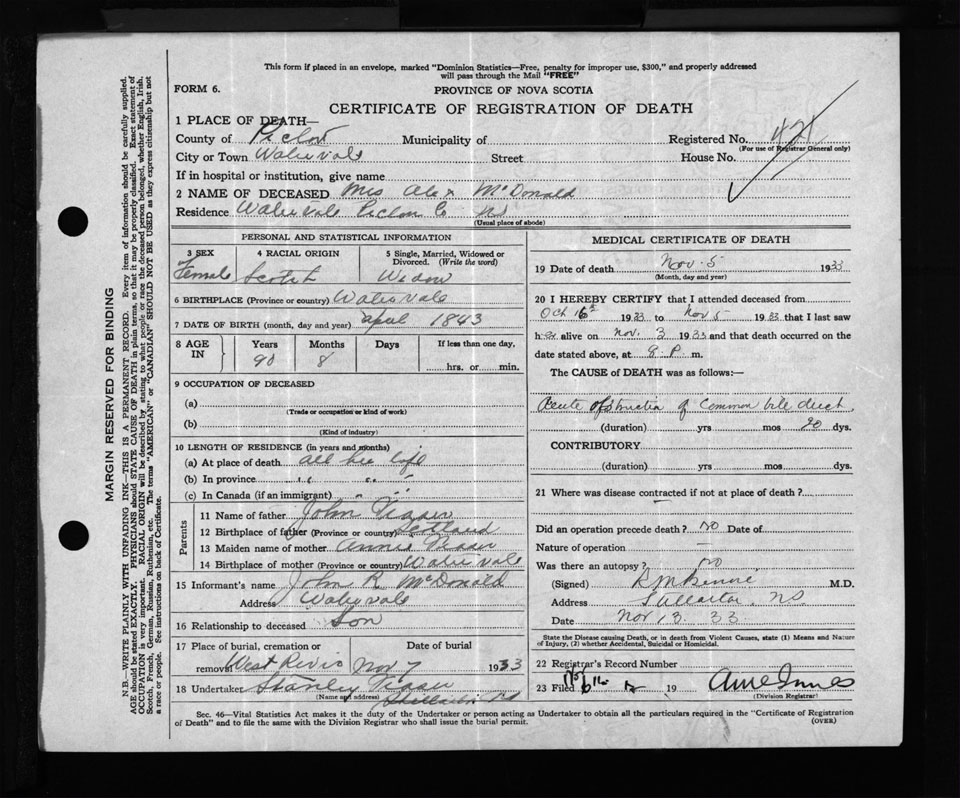 This form if placed in an envelope, marked "Dominion Statistics—Free, penalty for improper use, $300," and properly addressed
will pass through the Mail "FREE"
FORM 6.
PROVINCE OF NOVA SCOTIA
CERTIFICATE OF REGISTRATION OF DEATH
1 PLACE OF DEATH—
County of Pictou Municipality of Registered No. 421
(For use of Registrar General only)
City or Town Watervale Street House No.
If in hospital or institution, give name
2 NAME OF DECEASED Mrs Alex McDonald
Residence Watervale Pictou Co NS
(Usual place of abode)
PERSONAL AND STATISTICAL INFORMATION
3 SEX 4 RACIAL ORIGIN 5 Single, Married, Widowed or
Divorced. (Write the word)
Female Scotch Widow
6 BIRTHPLACE (Province or country) Watervale
7 DATE OF BIRTH (month, day and year) April 1843
8 AGE IN Years Months Days If less than one day,
90 8 hrs. or min.
9 OCCUPATION OF DECEASED
(a)
(Trade or occupation or kind of work)
(b)
(Kind of industry)
10 LENGTH OF RESIDENCE (in years and months)
(a) At place of death all her life
(b) In province " " "
(c) In Canada (if an immigrant) " "
Parents
11 Name of father John Fraser
12 Birthplace of father (Province or country) Scotland
13 Maiden name of mother Annie Fraser
14 Birthplace of mother (Province or country) Watervale
15 Informant's name John R. McDonald
Address Watervale
16 Relationship to deceased Son
17 Place of burial, cremation or Date of burial
removal West River Nov 7 1933
18 Undertaker Stanley Fraser
(Name and address) Stellarton NS
MEDICAL CERTIFICATE OF DEATH
19 Date of death Nov. 5 1933
(Month, day and year)
20 I HEREBY CERTIFY that I attended deceased from
Oct 16th 1933 to Nov 5 1933 that I last saw
her alive on Nov. 3 1933 and that death occurred on the
date stated above, at 8 P. m.
The CAUSE of DEATH was as follows:—
Acute obstruction of Common bile duct
(duration) yrs mos 20 dys.
CONTRIBUTORY
(duration) yrs mos dys.
21 Where was disease contracted if not at place of death?
Did an operation precede death? No Date of
Nature of operation —
Was there an autopsy? no
(Signed) M.D.
Address Stellarton, NS
Date Nov 13 33
State the Disease causing Death, or in death from Violent Causes, state (1) Means and Nature
of Injury, (2) whether Accidental, Suicidal or Homicidal.
22 Registrar's Record Number
23 Filed 19
(Division Registrar)
Sec. 46—Vital Statistics Act makes it the duty of the Undertaker or person acting as Undertaker to obtain all the particulars required in the "Certificate of Registration
of Death" and to file the same with the Division Registrar who shall issue the burial permit. (OVER)
MARGIN RESERVED FOR BINDING
N.B.—WRITE PLAINLY WITH UNFADING INK—THIS IS A PERMANENT RECORD. Every item of information should be carefully supplied.
AGE should be stated EXACTLY. PHYSICIANS should STATE CAUSE OF DEATH in plain terms, so that it may be properly classified. Exact statement of
OCCUPATION is very important. RACIAL ORIGIN will be described by stating to what people or race the deceased person belonged, whether English, Irish,
Scotch, French, German, Russian, Ruthenian, etc. The terms "AMERICAN" or "CANADIAN" SHOULD NOT BE USED as they express citizenship but not
a race or people. See instructions on back of Certificate.